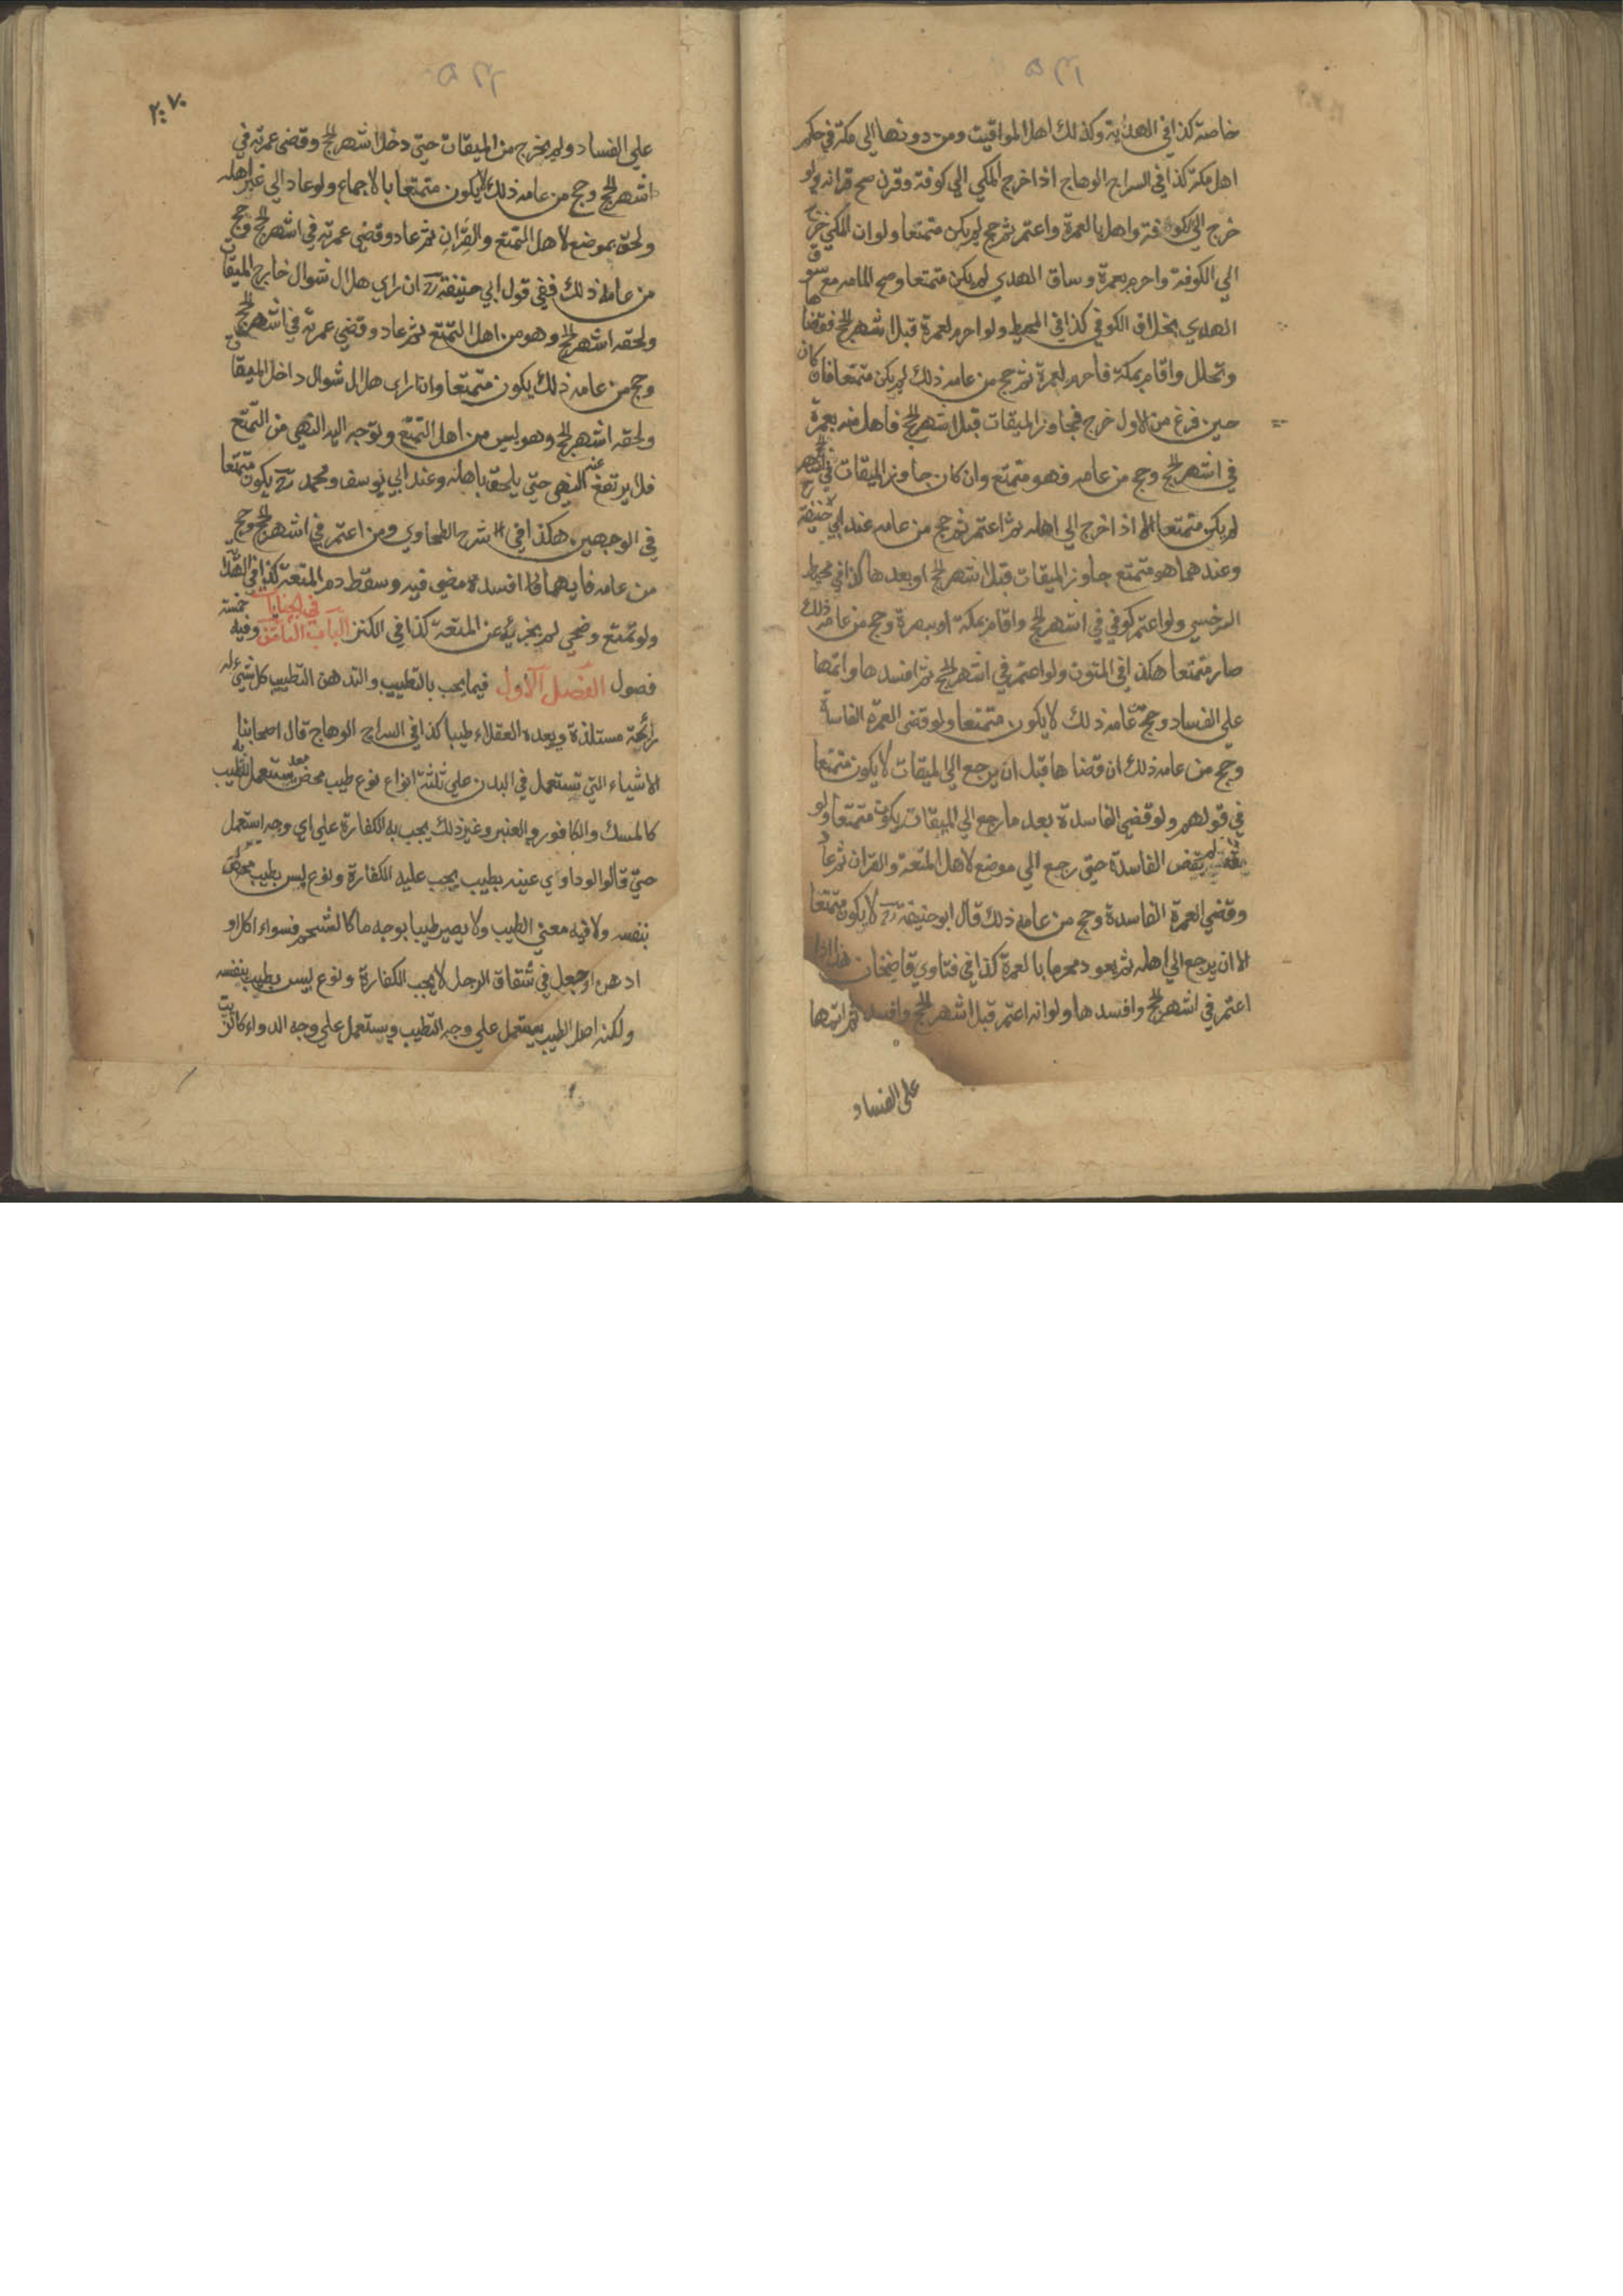 خاصة كذا في الهداية وكذلك اهل المواقيت ومن دونها الى مكة في حكم
اهل مكة كذا في السراج الوهاج اذا خرج المكي الي كوفة وقرن صح قرانه ولو
خرج الي الكوفة واهل بالعمرة واعتمر ثم حج لم يكن متمتعا ولو ان المكي خرج
الي الكوفة واحرم بعمرة وساق الهدي لم يكن متمتعا وصح المامه مع سوق
الهدي بخلاف الكوفي كذا في المحيط ولو احرم لعمرة قبل اشهر الحج فقضاها
وتحلل واقام بمكة فاحرم لعمرة ثم حج من عامه ذلك لم يكن متمتعا فان كان
حين فرغ من الاول خرج فجاوز الميقات قبل اشهر الحج فاهل منه بعمرة
في اشهر الحج وحج من عامه فهو متمتع وان كان جاوز الميقات في اشهر الحج
لم يكن متمتعا الا اذا خرج الي اهله ثم اعتمر ثم حج من عامه عند ابي حنيفة رح
وعندهما هو متمتع جاوز الميقات قبل اشهر الحج او بعدها كذا في محيط
السرخسي ولو اعتمر كوفي في اشهر الحج واقام بمكة او بصرة وحج من عامه ذلك
صار متمتعا هكذا في المتون ولو اعتمر في اشهر الحج ثم افسدها واتمها
علي الفساد وحج عامه ذلك لا يكون متمتعا ولو قضى العمرة الفاسدة
وحج من عامه ذلك ان قضاها قبل ان يرجع الي الميقات لا يكون متمتعا
في قولهم ولو قضي الفاسدة بعد ما رجع الي الميقات يكون متمتعا ولو
لم يقض الفاسدة حتى رجع الي موضع لاهل المتعة والقران ثم عاد
وقضي العمرة الفاسدة وحج من عامه ذلك قال ابو حنيفة رح لا يكون متمتعا
الا ان يرجع الي اهله ثم يعود محرما بالعمرة كذا في فتاوي قاضيخان هذا اذا
اعتمر في اشهر الحج وافسدها ولو انه اعتمر قبل اشهر الحج وافسد ثم اتمها
على الفساد
٢٠٧
علي الفساد ولم يخرج من الميقات حتي دخل اشهر الحج وقضى عمرته في
اشهر الحج وحج من عامه ذلك لا يكون متمتعا بالاجماع ولو عاد الي غير اهله
ولحق بموضع لاهل التمتع والقران ثم عاد وقضي عمرته في اشهر الحج وحج
من عامه ذلك ففي قول ابي حنيفة رح ان راي هلال شوال خارج الميقات
ولحقه اشهر الحج وهو من اهل التمتع ثم عاد وقضي عمرته في اشهر الحج
وحج من عامه ذلك يكون متمتعا وان راى هلال شوال داخل الميقات
ولحقه اشهر الحج وهو ليس من اهل التمتع وتوجه اليه النهي من التمتع
فلا يرتفع عنه النهي حتي يلحق باهله وعند ابي يوسف ومحمد رح يكون متمتعا
في الوجهين هكذا في شرح الطحاوي ومن اعتمر في اشهر الحج وحج
من عامه فايهما افسده مضي فيه وسقط دم المتعة كذا في الهداية
ولو تمتع وضحي لم يجزئه عن المتعة كذا في الكنز الباب الثامن في الجنايات وفيه خمسة
فصول الفصل الاول فيما يجب بالتطييب والتدهن التطييب كل شيء له
رائحة مستلذة ويعده العقلاء طيبا كذا في السراج الوهاج قال اصحابنا
الاشياء التي تستعمل في البدن علي ثلثة انواع نوع طيب محض معد يستعمل للتطيب به
كالمسك والكافور والعنبر وغير ذلك يجب به الكفارة علي اي وجه استعمل
حتي قالوا لو داوي عينه بطيب يجب عليه الكفارة ونوع ليس بطيب
بنفسه ولا فيه معني الطيب ولا يصير طيبا بوجه ما كالشحم فسواء اكل او
ادهن او جعل في شقاق الرجل لا يجب الكفارة ونوع ليس بطيب بنفسه
ولكنه اصل الطيب يستعمل علي وجه التطيب ويستعمل علي وجه الدواء كالزيت